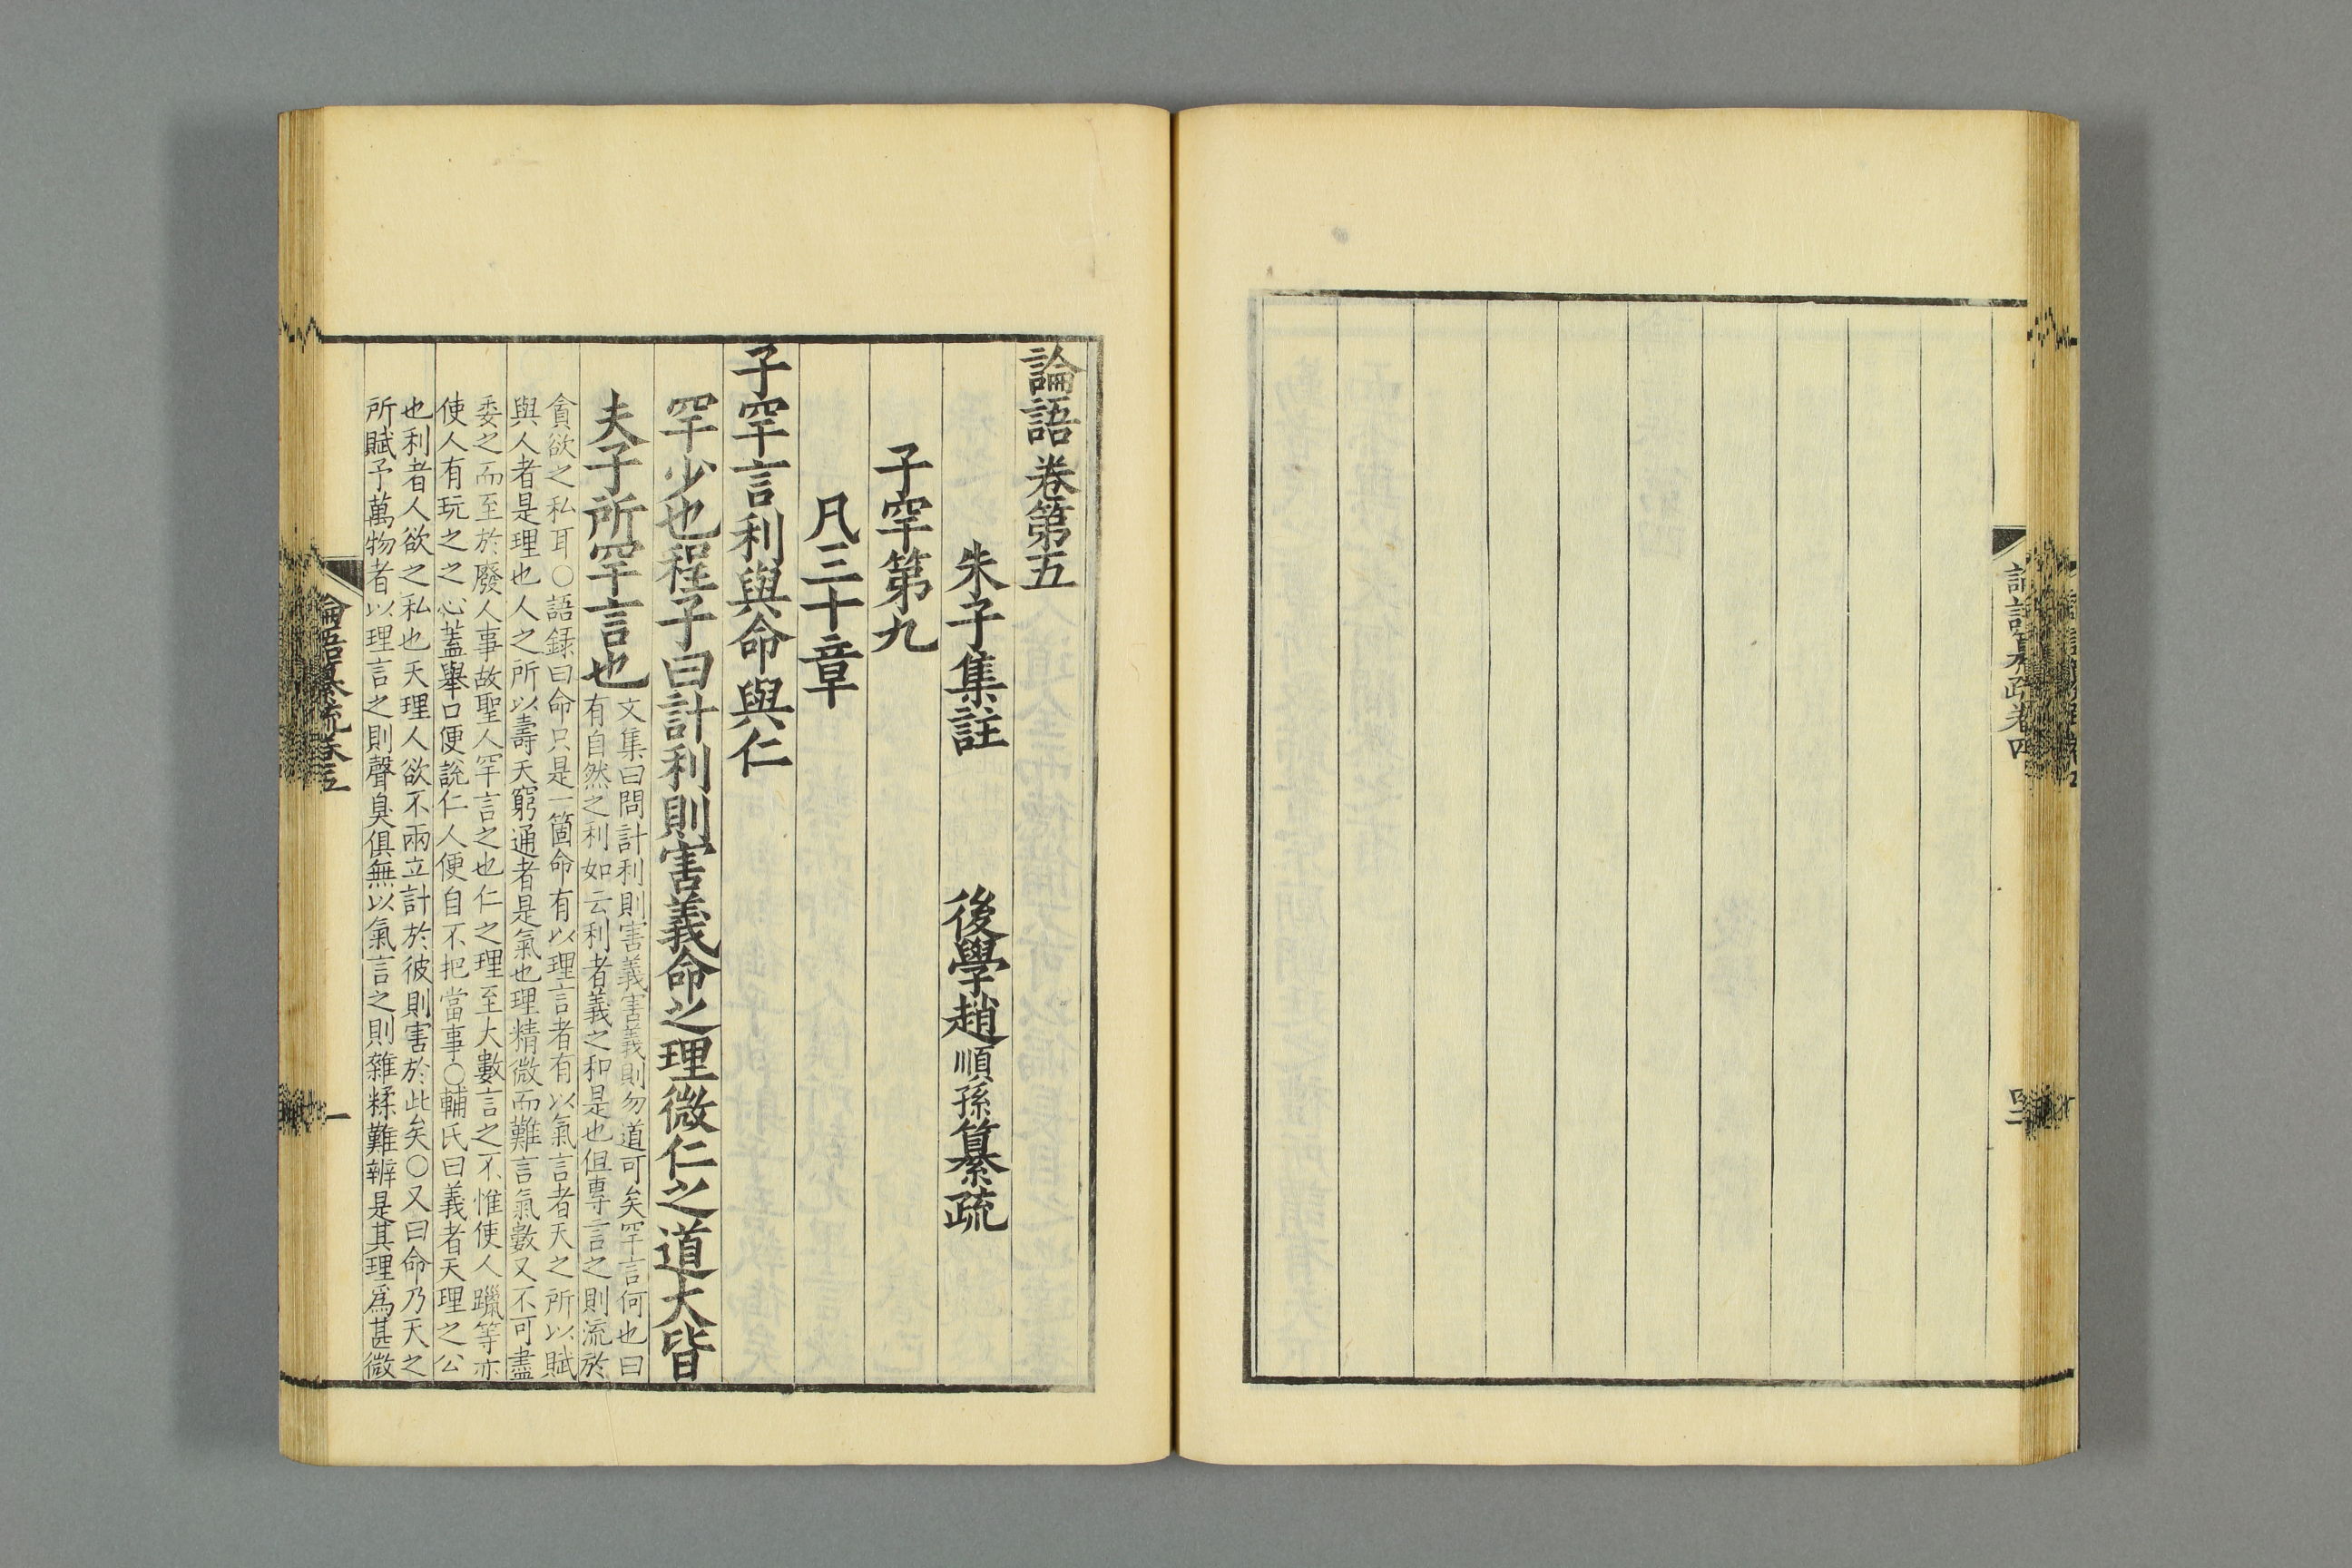 論語纂疏卷四
四二
論語卷第五
朱子集註　後學趙順孫纂疏
子罕第九
凡三十章
子罕言利與命與仁
罕少也程子曰計利則害義命之理微仁之道大皆
夫子所罕言也
文集曰問計利則害義害義則勿道可矣罕言何也曰
有自然之利如云利者義之和是也但專言之則流於
貪欲之私耳○語録曰命只是一箇命有以理言者有以氣言者天之所以賦
與人者是理也人之所以壽夭窮通者是氣也理精微而難言氣數又不可盡
委之而至於廢人事故聖人罕言之也仁之理至大數言之不惟使人躐等亦
使人有玩之之心蓋舉口便說仁人便自不把當事○輔氏曰義者天理之公
也利者人欲之私也天理人欲不兩立計於彼則害於此矣○又曰命乃天之
所賦予萬物者以理言之則聲臭俱無以氣言之則雜糅難辨是其理爲甚微
論語纂疏卷五
一